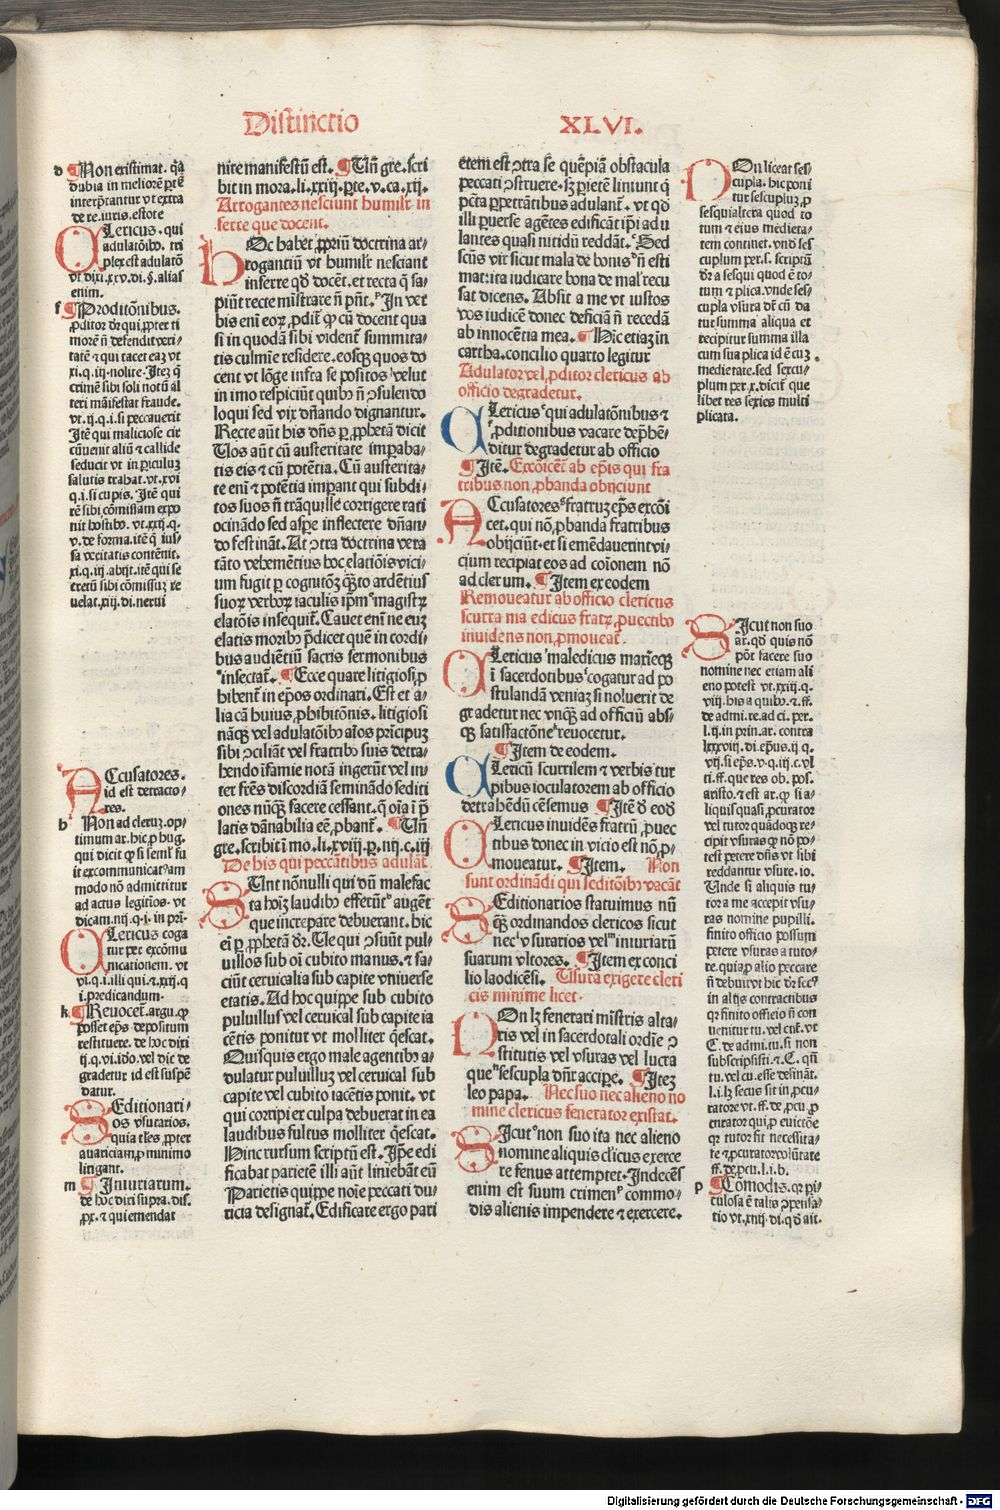 Distinctio XLVI.
d ¶Non existimat. qa
dubia in meliorē ptē
interptantur vt extra
de re. iuris. estote
CLericus. qui
adulatōib. tri
plex est adulatō
vt dixi.xxv.di.§.alias
enim.
f ¶Proditōnibus.
morē ñ defendit veri-
tatē ⁊ qui tacet eaz vt
xi.q.iij.nolite. Itez q̄
crimē sibi soli notū al
teri māifestat fraude.
vt.ij.q.i.si peccauerit
Itē qui maliciose cir
cūuenit aliū ⁊ callide
seducit vt in piculuz
salutis trahat. vt.xvi
q.i.si cupis. Itē qui
rē sibi cōmissam expo
nit hostib. vt.xxij.q.
v. de forma. itē q̄ ius-
sa veritatis contēnit.
xi.q.iij. abijt. itē qui se
cretū sibi cōmissuz re
uelat.xiij.di.nerui
ACcusatores.
id est detracto-
res.
h Non ad cleruz. op-
timum ar. hic p hug.
qui dicit q si semel fu
it excommunicatus am
modo nō admittitur
ad actus legitīos. vt
dicam.iiij.q.i. in pri-
CLericus coga
tur per excōmu
nicationem. vt
vi.q.i.illi qui.⁊.xxij.q
i.predicandum.
k ¶Reuocet. argu. q
posset eps depositum
restituere. de hoc dixi
ij.q.vi.ido. vel dic de
gradetur id est suspē
datur.
SEditionari-
os vsurarios.
quia tles ppter
auariciam p minimo
litigant.
m ¶Iniuriarum.
de hoc dixi supra. dis.
px. ⁊ qui emendat
nire manifestū est. ¶Vñ gre. scri
bit in mora.li.xxiij.pte.v.ca.xij.
Arrogantes nesciunt humilr in
ferre que docent.
HOc habet ppriū doctrina ar-
rogantiū vt humilr nesciant
inferre qd docēt. et recta q̄ sa-
piūt recte mīstrare ñ pñt. In ver
bis eni eoz pdit q cū docent qua
si in quodā sibi vident summita-
tis culmīe residere. eosqz quos do
cent vt lōge infra se positos velut
in imo respiciūt quib ñ ꝯsulendo
loqui sed vix dñando dignantur.
Recte aūt his dñs p pphetā dicit
Uos aūt cū austeritate impaba-
tis eis ⁊ cū potētia. Cū austerita-
te eni ⁊ potētia impant qui subdi-
tos suos ñ trāquille corrigere rati
ocinādo sed aspe inflectere dñan-
do festināt. At ꝯtra doctrina vera
tāto vehemētius hoc elatiōis vici-
um fugit p cognitōz qzto ardētius
suoz verboz iaculis ipm magistrz
elatōis insequit. Cauet eni ne euz
elatis morib pdicet quē in cordi-
bus audiētiū sacris sermonibus
insectat. ¶Ecce quare litigiosi p
hibent in epos ordinari. Est et a-
lia cā huius phibitōnis. litigiosi
nāqz vel adulatōib alos prīcipuz
sibi ꝯciliāt vel fratrib suis detra-
hendo īfamie notā ingerūt vel in-
ter frēs discordiā seminādo sediti
ones nūqz facere cessant. q oīa i p
latis dānabilia eē pbant. ¶Vñ
gre. scribit ī mo.li.xviij.p.iiij.c.iij
De his qui peccātibus adulat.
SUnt nōnulli qui dū malefac
ta hoiz laudib efferūt augēt
que increpare debuerant. hic
ei p pphetā dr. Ue qui ꝯsuūt pul-
uillos sub oi cubito manus. ⁊ fa-
ciūt ceruicalia sub capite vniuerse
etatis. Ad hoc quippe sub cubito
puluillus vel ceruical sub capite ia
cētis ponitur vt molliter qescat.
Quisquis ergo male agentib a-
dulatur puluilluz vel ceruical sub
capite vel cubito iacētis ponit. vt
qui corripi ex culpa debuerat in ea
laudibus fultus molliter qescat.
Hinc rursum scriptū est. Ipe edi
ficabat parietē illi aūt liniebāt eū
Parietis quippe noie peccati du-
ricia designat. Edificare ergo pari
etem est ꝯtra se quēpiā obstacula
peccati ꝯstruere. sz pietē liniunt q̄
pctā ppetrātibus adulant. vt qd
illi puerse agētes edificāt ipi adu
lantes quasi nitidū reddāt. Sed
scūs vir sicut mala de bonis ñ esti
mat: ita iudicare bona de mal recu
sat dicens. Absit a me vt iustos
vos iudicē donec deficiā ñ recedā
ab innocētia mea. ¶Hīc etiaz in
cartha. concilio quarto legitur
Adulator vel pditor clericus ab
officio degradetur.
CLericus qui adulatōnibus ⁊
pditionibus vacare dephē-
ditur degradetur ab officio
¶Itē. Excōicēt ab epis qui fra
tribus non pbanda obijciunt
ACcusatores fratruz eps excōi
cet. qui nō pbanda fratribus
obijciūt. et si emēdauerint vi-
cium recipiat eos ad coīonem nō
ad clerum. ¶Item ex eodem
Remoueatur ab officio clericus
scurra maledicus fratz puectib
inuidens non pmoueat.
CLericus maledicus maxīeqz
ī sacerdotibus cogatur ad po
stulandā veniaz si noluerit de
gradetur nec vnqz ad officiū abs-
qz satisfactōne reuocetur.
¶Item de eodem.
CLericū scurrilem ⁊ verbis tur
pibus ioculatorem ab officio
detrahēdū cēsemus ¶Itē d eod
CLericus inuidēs fratrū puec
tibus donec in vicio est nō p-
moueatur. ¶Item. Non
sunt ordināndi qui seditōib vacāt
SEditionarios statuimus nū
qz ordinandos clericos sicut
nec vsurarios vel iniuriarū
suarum vltores. ¶Item ex conci
lio laodicēsi. Usura exigere cleri
cis minime licet.
NOn lz fenerati mīstris alta-
ris vel in sacerdotali ordīe ꝯ
stitutis vel vsuras vel lucra
que sescupla dnr accipe. ¶Itez
leo papa. Nec suo nec alieno no
mine clericus fenerator existat.
SIcut non suo ita nec alieno
nomine aliquis clicus exerce
re fenus attemptet. Indecēs
enim est suum crimen commo-
dis alienis impendere ⁊ exercere.
NOn liceat ses-
cupla. hic poni
tur sescupluz p
sesquialtera quod to
tum ⁊ eius medieta-
tem continet. vnd ses
cuplum per.s. scriptū
dr a sesqui quod ē to-
tum ⁊ plica. vnde ses-
cupla vsura dr cū da
tur summa aliqua et
recipitur summa illa
cum sua plica id ē cuz
medietate. sed sexcu-
plum per.x. dicit que
libet res sexies multi
plicata.
SIcut non suo
ar. qd quis nō
pōt facere suo
nomine nec etiam ali
eno potest vt.xxiij.q.
viij. his a quib. ⁊.ff.
de admi.re.ad ci.per.
l.ij.in prin.ar. contra
lxxxviij.di.epus.ij q.
vij.si eps.v.q.iij.c.vl
ti.ff.que res ob.pos.
aristo. ⁊ est ar. q si a-
liquis quasi pcurator
vel tutor quādoqz re-
cipit vsuras q nō po-
test petere dñs vt sibi
reddantur vsure. io.
Unde si aliquis tu-
tor a me accepit vsu-
ras nomine pupilli.
finito officio possum
petere vsuras a tuto-
re. quia p alio peccare
ñ debuit vt hic dr sec
in alijs contractibus
qz finito officio ñ con
uenitur tu. vel cur. vt
C.de admi.tu.si non
subscripsisti.⁊.C. qñ
tu.vel cu.esse desināt.
l.i.lz secus sit in pcu-
ratore vt.ff.de.pcu.p
curator qui p euictōe
qz tutor fit necessita-
te ⁊ pcurator volūtate
ff.de pcu.l.i.b.
p ¶Cōmodis. qz pi-
culosa ē talis ꝯpensa-
tio vt.xiiij.di.qd ait.
Digitalisierung gefördert durch die Deutsche Forschungsgemeinschaft - DFG